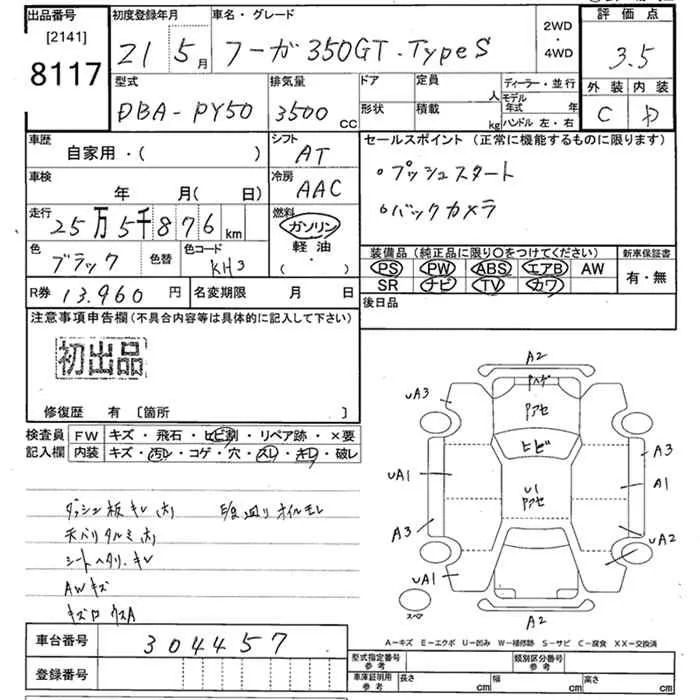 出品番号 初度登録年月 車名・グレード 2WD・4WD 評価点
[2141]
8117 21 5月 フーガ 350GT・TypeS 3.5
型式 排気量 ドア 定員 人 ディーラー・並行 外装 内装
DBA-PY50 3500 CC 形状 積載 kg モデル年式 年 C D
ハンドル 左・右
車歴 シフト セールスポイント (正常に機能するものに限ります)
自家用・( ) AT
車検 冷房 ・プッシュスタート
年 月( 日) AAC
走行 燃料 ・バックカメラ
25万5千876km ガソリン
軽油
・( )
色 色替 色コード 装備品 (純正品に限り○をつけてください) 新車保証書
ブラック KH3 PS PW ABS エアB AW 有・無
SR ナビ TV カワ
R券 13,960円 名変期限 月 日 後日品
注意事項申告欄 (不具合内容等は具体的に記入して下さい)
初出品
修復歴 有 [箇所 ]
検査員 FW キズ・飛石・ヒビ割・リペア跡・×要
記入欄 内装 キズ・汚レ・コゲ・穴・スレ・キレ・破レ
ダッシュ板キレ 下廻りオイルモレ
天バリタルミ
シートヘタリ・キレ
AWキズ
車台番号 304457
登録番号
A2
uA3
ヒビ
A3
uA1
A1
U1
A3
uA2
uA1
スペア
A2
A-キズ E-エクボ U-凹み W-補修跡 S-サビ C-腐食 XX-交換済
型式指定番号 参考 類別区分番号 参考
車庫証明用 参考 長さ cm 幅 cm 高さ cm